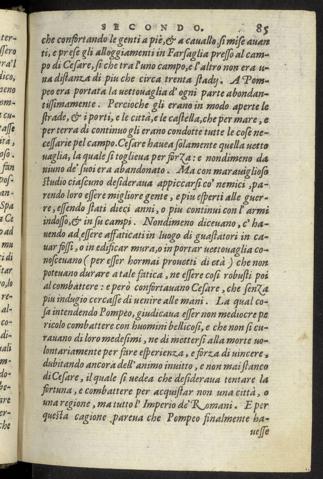 SECONDO. 85
che confortando le genti a piè, & a cauallo, si mise auan
ti, e prese gli alloggiamenti in Farsaglia presso al cam-
po di Cesare, si che tra l'uno campo, e l'altro non era u-
na distanza di piu che circa trenta stady. A Pom-
peo era portata la uettouaglia d'ogni parte abondan-
tissimamente. Percioche gli erano in modo aperte le
strade, & i porti, e le città, e le castella, che per mare, e
per terra di continuo gli erano condotte tutte le cose ne-
cessarie pel campo. Cesare haueа solamente quella uetto
uaglia, la quale si toglieua per forza: e nondimeno da
niuno de' suoi era abandonato. Ma con marauiglioso
studio ciascuno desideraua appiccarsi co' nemici, pa-
rendo loro essere migliore gente, e piu esperti alle guer-
re, essendo stati dieci anni, o piu continui con l'armi
indosso, & in su campi. Nondimeno diceuano, c'ha-
uendo ad essere affaticati in luogo di guastatori in ca-
uar fossi, o in edificar mura, o in portar uettouaglia co-
nosceuano (per esser hormai prouetti di età) che non
poteuano durare a tale fatica, ne essere cosi robusti poi
al combattere: e però confortauano Cesare, che senza
piu indugio cercasse di uenire alle mani. La qual co-
sa intendendo Pompeo, giudicaua esser non mediocre pe
ricolo combattere con huomini bellicosi, e che non si cu-
rauano di loro medesimi, ne di mettersi alla morte uo-
lontariamente per fare esperienza, e forza di uincere,
dubitando ancora dell'animo inuitto, e non mai stanco
di Cesare, il quale si uedea che desideraua tentare la
fortuna, e combattere per acquistar non una città, o
una regione, ma tutto l'Imperio de' Romani. E per
questa cagione pareua che Pompeo finalmente ha-
uesse